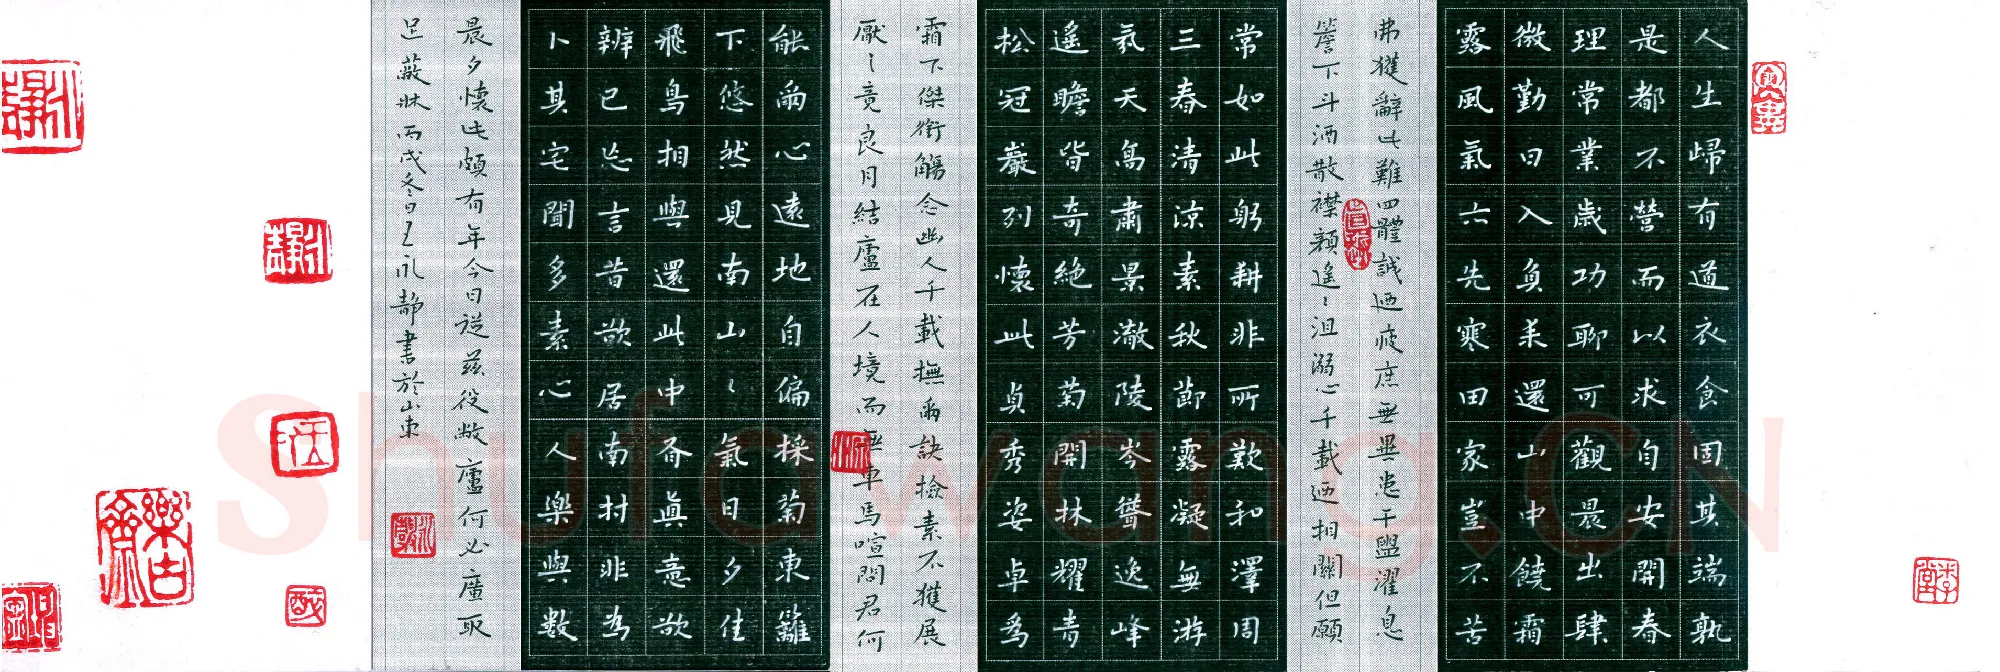 人生歸有道衣食固其端孰
是都不營而以求自安開春
理常業歲功聊可觀晨出肆
微勤日入負耒還山中饒霜
露風氣亦先寒田家豈不苦
弗獲辭此難四體誠迺疲庶無異患干盥濯息
簷下斗酒散襟顏遙〻沮溺心千載迺相關但願
常如此躬耕非所歎和澤周
三春清涼素秋節露凝無游
氛天高肅景澈陵岑聳逸峰
遙瞻皆奇絕芳菊開林耀青
松冠巖列懷此貞秀姿卓為
霜下傑銜觴念幽人千載撫爾訣檢素不獲展
厭〻竟良月結廬在人境而無車馬喧問君何
能爾心遠地自偏採菊東籬
下悠然見南山〻氣日夕佳
飛鳥相與還此中有真意欲
辨已忘言昔欲居南村非為
卜其宅聞多素心人樂與數
晨夕懷此頗有年今日從茲役敝廬何必廣取
足蔽牀丙戌冬日王永靜書於山東
Shufawang.CN